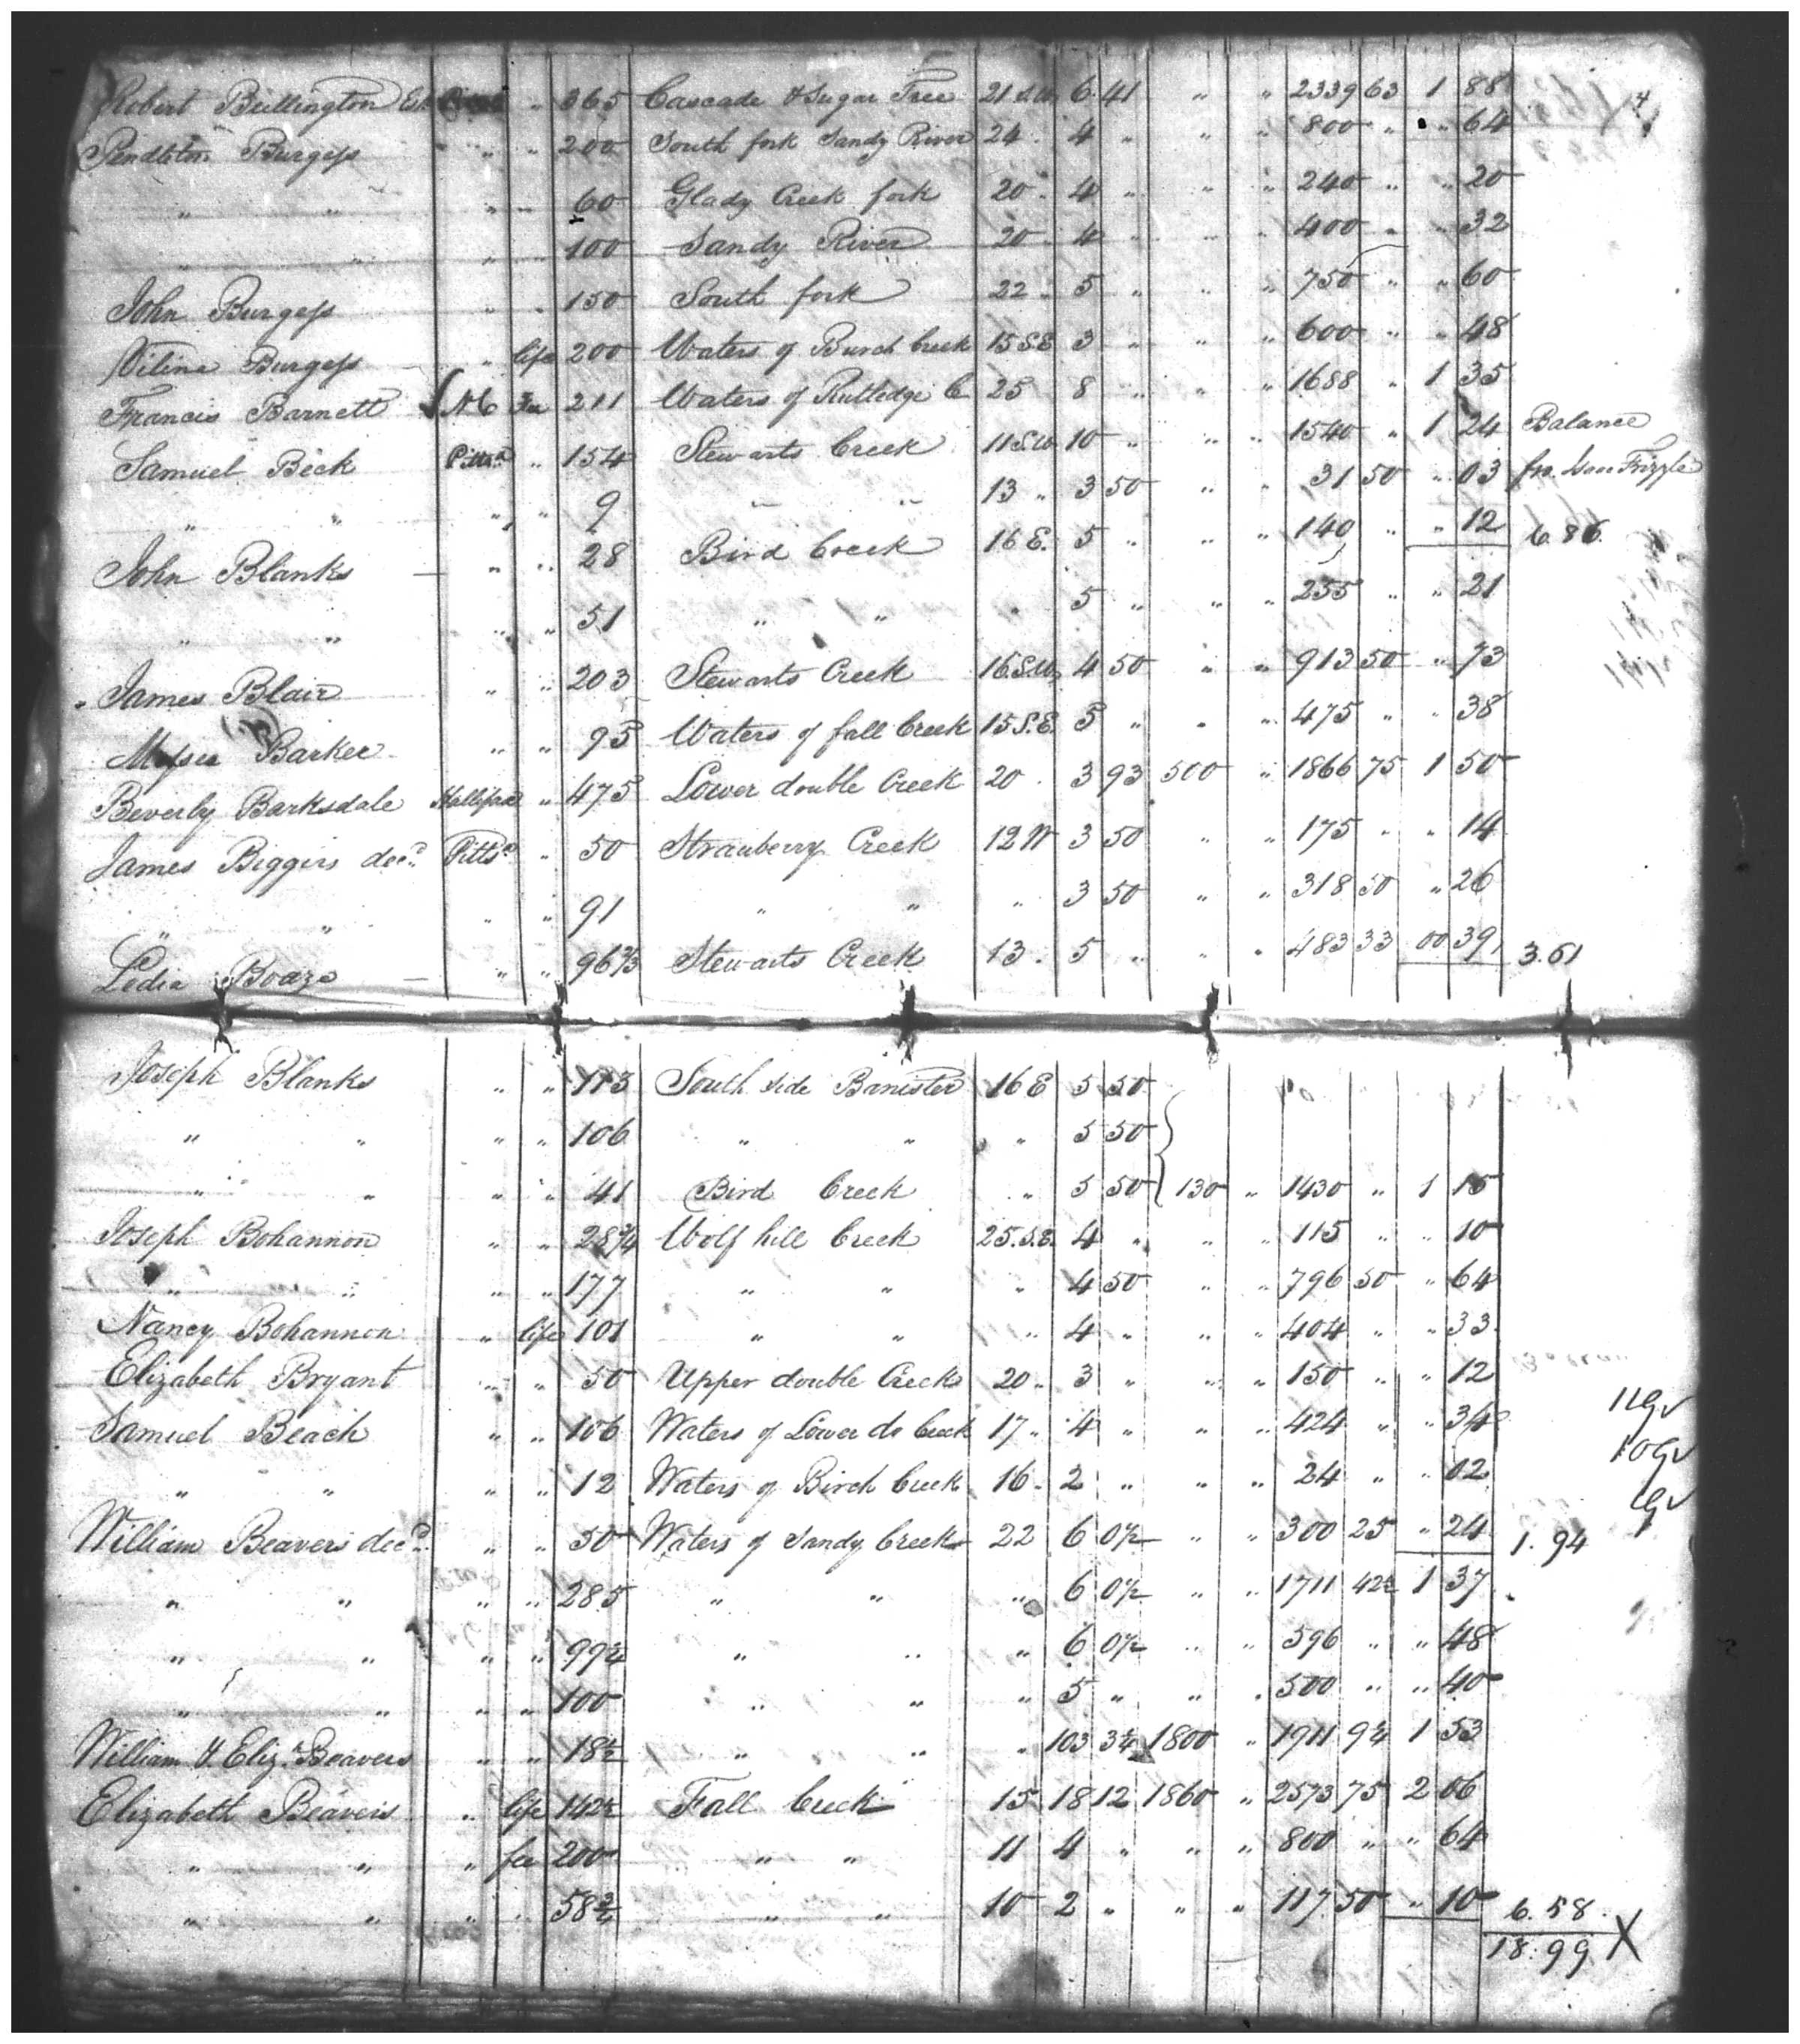 4
Robert Bullington Est " 365 Cascade & Sugar Tree 21 S.W. 6 41 " " 2339 63 1 88
Pendleton Burgess " " 200 South fork Sandy River 24 . 4 " " " 800 " " 64
" " " " 60 Glady Creek fork 20 . 4 " " " 240 " " 20
" " " " 100 Sandy River 20 . 4 " " " 400 " " 32
John Burgess " " 150 South fork 22 . 5 " " " 750 " " 60
Burgess " life 200 Waters of Burch Creek 15 S.E 3 " " " 600 " " 48
Francis Barnett NC Fee 211 Waters of Rutledge C 25 8 " " " 1688 " 1 35
Samuel Beck Pittsa " 154 Stewarts Creek 11 S.W 10 " " " 1540 " 1 24 Balance
" " " " 9 " " 13 " 3 50 " " 31 50 " 03 fro. Isaac Frizzle
John Blanks " " 28 Bird Creek 16 E. 5 " " " 140 " " 12 6.86
" " " " 51 " " " 5 " " " 255 " " 21
James Blair " " 203 Stewarts Creek 16 S.W. 4 50 " " 913 50 " 73
Moses Barker " " 95 Waters of fall Creek 15 S.E. 5 " " " 475 " " 38
Beverly Barksdale Hallifax " 475 Lower double Creek 20 . 3 93 500 " 1866 75 1 50
James Biggers decd. Pittsa " 50 Strauberry Creek 12 W 3 50 " " 175 " " 14
" " " " 91 " " " 3 50 " " 318 50 " 26
Ledia Boaze " " 96 2/3 Stewarts Creek 13 . 5 " " " 483 33 00 39 3.61
Joseph Blanks " " 113 South side Banister 16 E 5 50
" " " " 106 " " " 5 50
" " " " 41 Bird Creek " 5 50 130 " 1430 " 1 15
Joseph Bohannon " " 28 3/4 Wolf hill Creek 25. S.E. 4 " " " 115 " " 10
" " " " 177 " " " 4 50 " " 796 50 " 64
Nancy Bohannon " life 101 " " " 4 " " " 404 " " 33
Elizabeth Bryant " " 50 Upper double Creek 20 " 3 " " " 150 " " 12
Samuel Beach " " 106 Waters of Lower do Creek 17 " 4 " " " 424 " " 34
" " " " 12 Waters of Birch Creek 16 . 2 " " " 24 " " 02
William Beavers decd. " " 50 Waters of Sandy Creek 22 6 0 1/2 " " 300 25 " 24 1.94
" " " " 285 " " " 6 0 1/2 " " 1711 42 1/2 1 37
" " " " 99 1/4 " " " 6 0 1/2 " " 596 " " 48
" " " " 100 " " " 5 " " " 500 " " 40
William & Eliz. Beavers " " 18 1/2 " " " 103 3 1/4 1800 " 1911 9 1/4 1 53
Elizabeth Beavers " life 142 1/2 Fall Creek 15 18 12 1860 " 2573 75 2 06
" " " fee 200 " " 11 4 " " " 800 " " 64
" " " " 58 3/4 " " 10 2 " " " 117 50 " 10 6.58
18.99 X